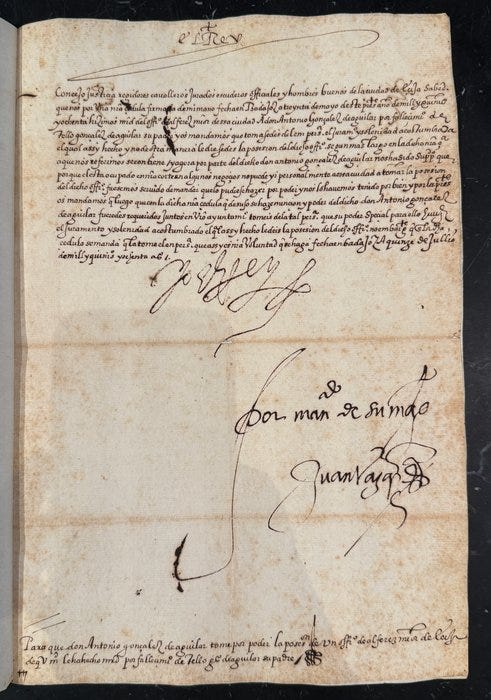 el Rey
Concejo justicia regidores cavalleros jurados escuderos officiales y hombres buenos de la ciudad de Ecija sabed
que nos por una nra cedula firmada de mi mano fecha en Badajoz a treynta de mayo deste pres.te año de mill y quinis
y ochenta hizimos md del off.º de alferez mor dessa ciudad A don Antonio gonçalez de aguilar por fallescimi.º de
Tello gonçalez de aguilar su padre y os mandamos que tomasedes del en pers.a el juram.º y solenidad acostumbrada
el qual assi hecho y no de otra manera le diesedes la posesion del dicho off.º segun mas largo en la dicha nra ç.a
a que nos referimos se contiene y agora por parte del dicho don antonio gonçalez de aguilar nos ha sido supp.do
que porque el esta ocupado en mi corte en algunos negocios no puede yr personalmente a essa ciudad a tomar la posesion
del dicho off.º fuesemos servido de mandar que lo pudiese hazer por poder y nos lo havemos tenido por bien y por la pres.te
os mandamos q luego que con la dicha nra cedula q de suso se haze mencion y poder del dicho don Antonio gonçalez
de aguilar fueredes requeridos Juntos en vro ayuntami.º tomeis de la tal pers.a que su poder special para ello tuviere
el juramento y solenidad acostumbrado el q assy hecho le deis la posesion del dicho off.º no embarg.te q por la dha
cedula se manda q la tomeis en pers.a que assy es mi voluntad que se haga fecha en badajoz A quinze de Jullio
de mill y quinis y ochenta a.s
yo el Rey
Por man.do de su mag.d
Juan Vazquez
Para que don Antonio gonçalez de aguilar tome por poder la poses.on de un off.º de alferez mor de Ecija
de q V m.d le ha hecho md por fallescimi.º de Tello g.z de aguilar su padre